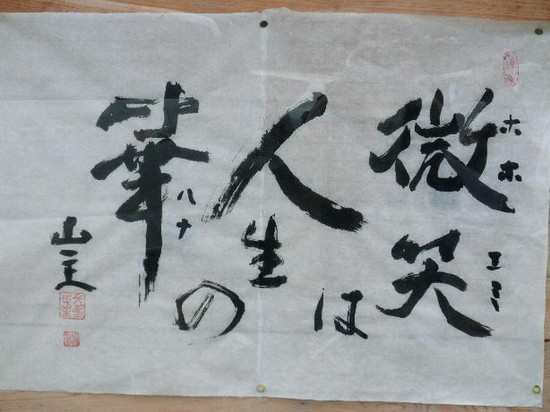 微笑
ホホエミ
は
人生の
華
ハナ
山主